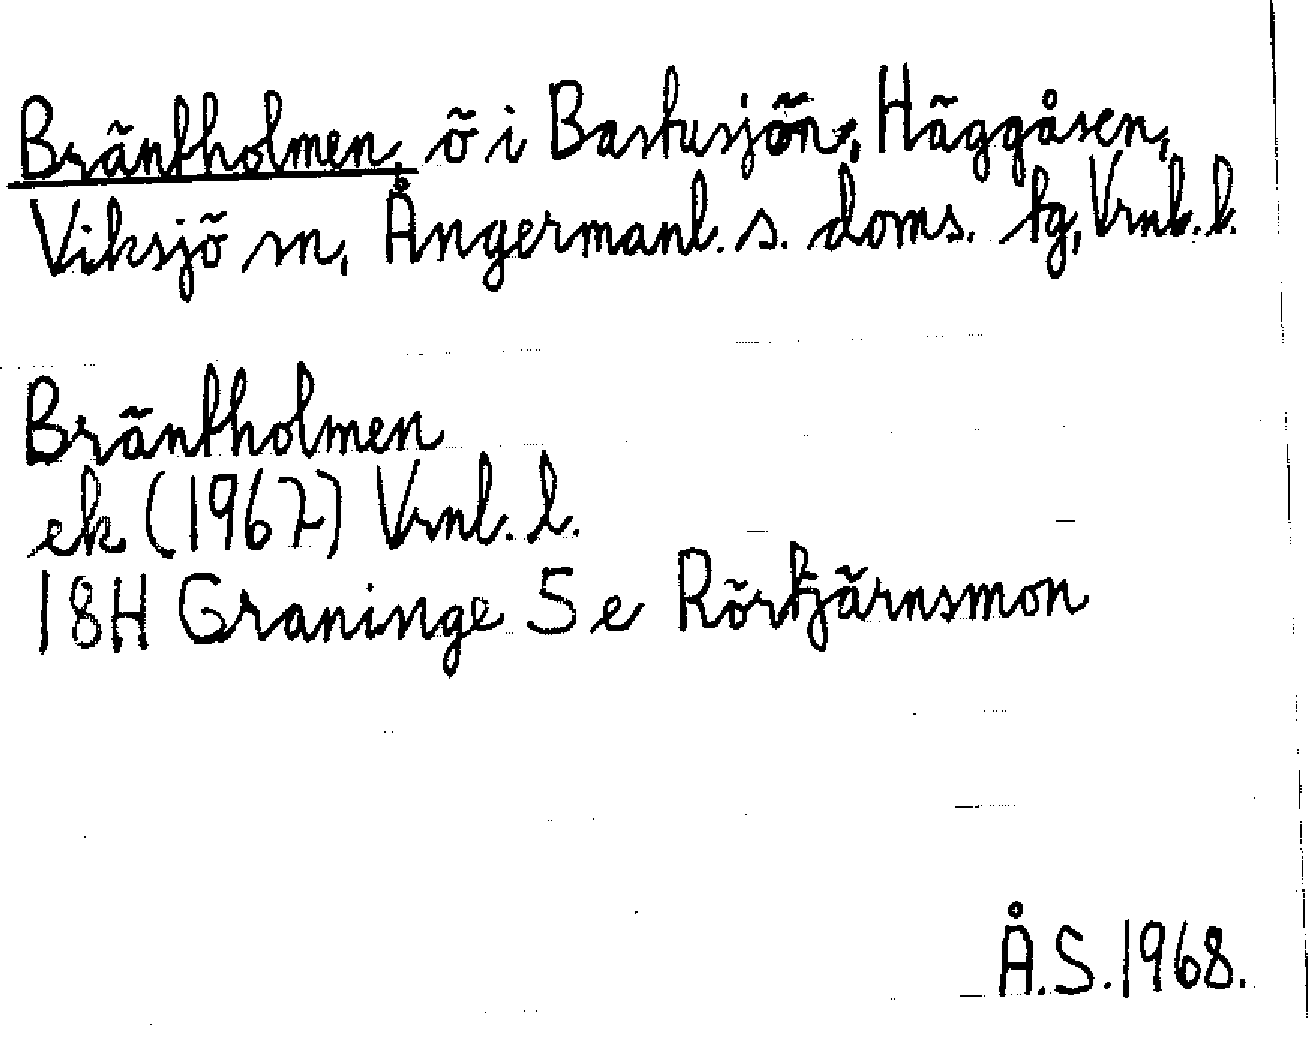 Bräntholmen, ö i Bastusjön, Häggåsen,
Viksjö sn, Ångermanl. s. doms. tg, Vrnl. l.
Bräntholmen
ek (1967) Vrnl. l.
18H Graninge 5 e Rörtjärnsmon
Å.S. 1968.